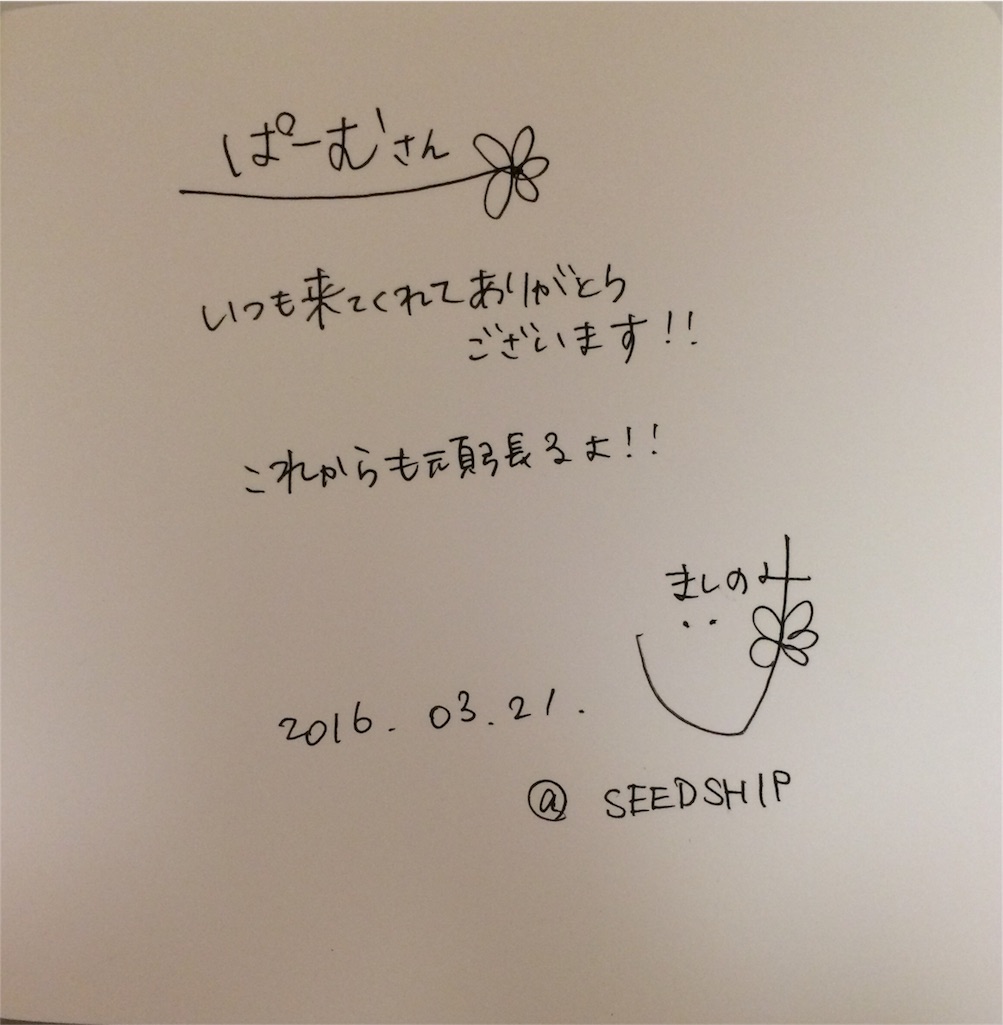 ぱーむさん
いつも来てくれてありがとう
ございます!!
これからも頑張るよ!!
ましのみ
2016.03.21.
@ SEEDSHIP